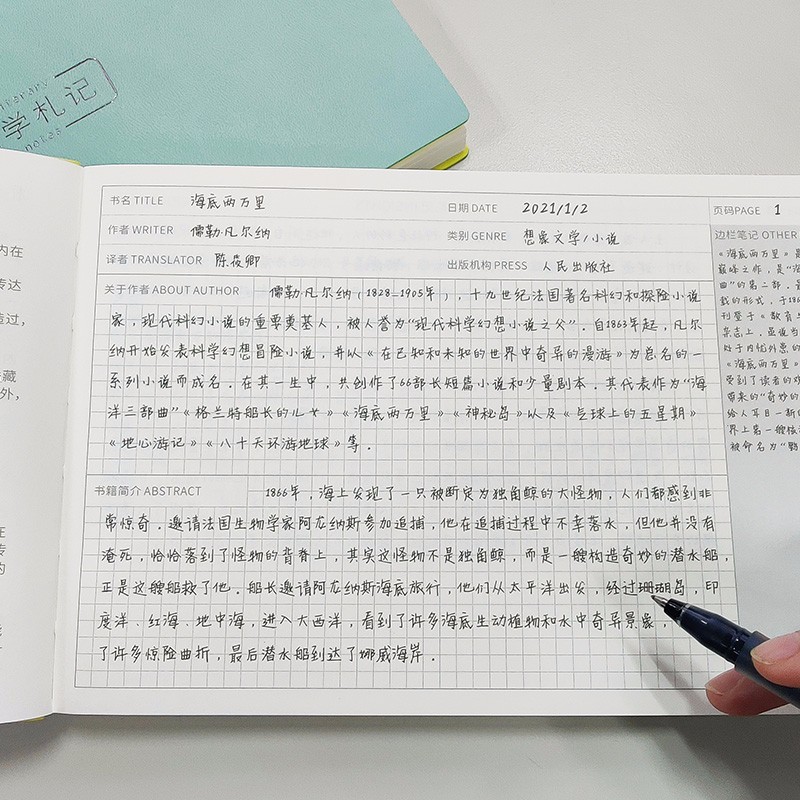 erary
学札记
notes
内在
传达
造过，
藏
外，
在
传
的
书名 TITLE 海底两万里 日期 DATE 2021/1/2 页码PAGE 1
作者 WRITER 儒勒·凡尔纳 类别 GENRE 想象文学/小说
译者 TRANSLATOR 陈筱卿 出版机构 PRESS 人民出版社
关于作者 ABOUT AUTHOR 儒勒·凡尔纳（1828-1905年），十九世纪法国著名科幻和探险小说
家，现代科幻小说的重要奠基人，被人誉为“现代科学幻想小说之父”．自1863年起，凡尔
纳开始发表科学幻想冒险小说，并以《在已知和未知的世界中奇异的漫游》为总名的一
系列小说而成名．在其一生中，共创作了66部长短篇小说和少量剧本．其代表作为“海
洋三部曲”《格兰特船长的儿女》《海底两万里》《神秘岛》以及《气球上的五星期》
《地心游记》《八十天环游地球》等．
书籍简介 ABSTRACT 1866年，海上发现了一只被断定为独角鲸的大怪物，人们都感到非
常惊奇．邀请法国生物学家阿龙纳斯参加追捕，他在追捕过程中不幸落水，但他并没有
淹死，恰恰落到了怪物的背脊上，其实这怪物不是独角鲸，而是一艘构造奇妙的潜水船，
正是这艘船救了他．船长邀请阿龙纳斯海底旅行，他们从太平洋出发，经过珊瑚岛，印
度洋、红海、地中海，进入大西洋，看到了许多海底生动植物和水中奇异景象，
了许多惊险曲折，最后潜水船到达了挪威海岸．
边栏笔记 OTHER
《海底两万里》是
巅峰之作，是“海
曲”的第二部，最
载的形式，于186
刊登于《教育与
杂志上，虽说当
处于内忧外患的
《海底两万里》
受到了读者的欢
带来的“奇妙的
给人耳目一新的
界上第一艘核潜
被命名为“鹦